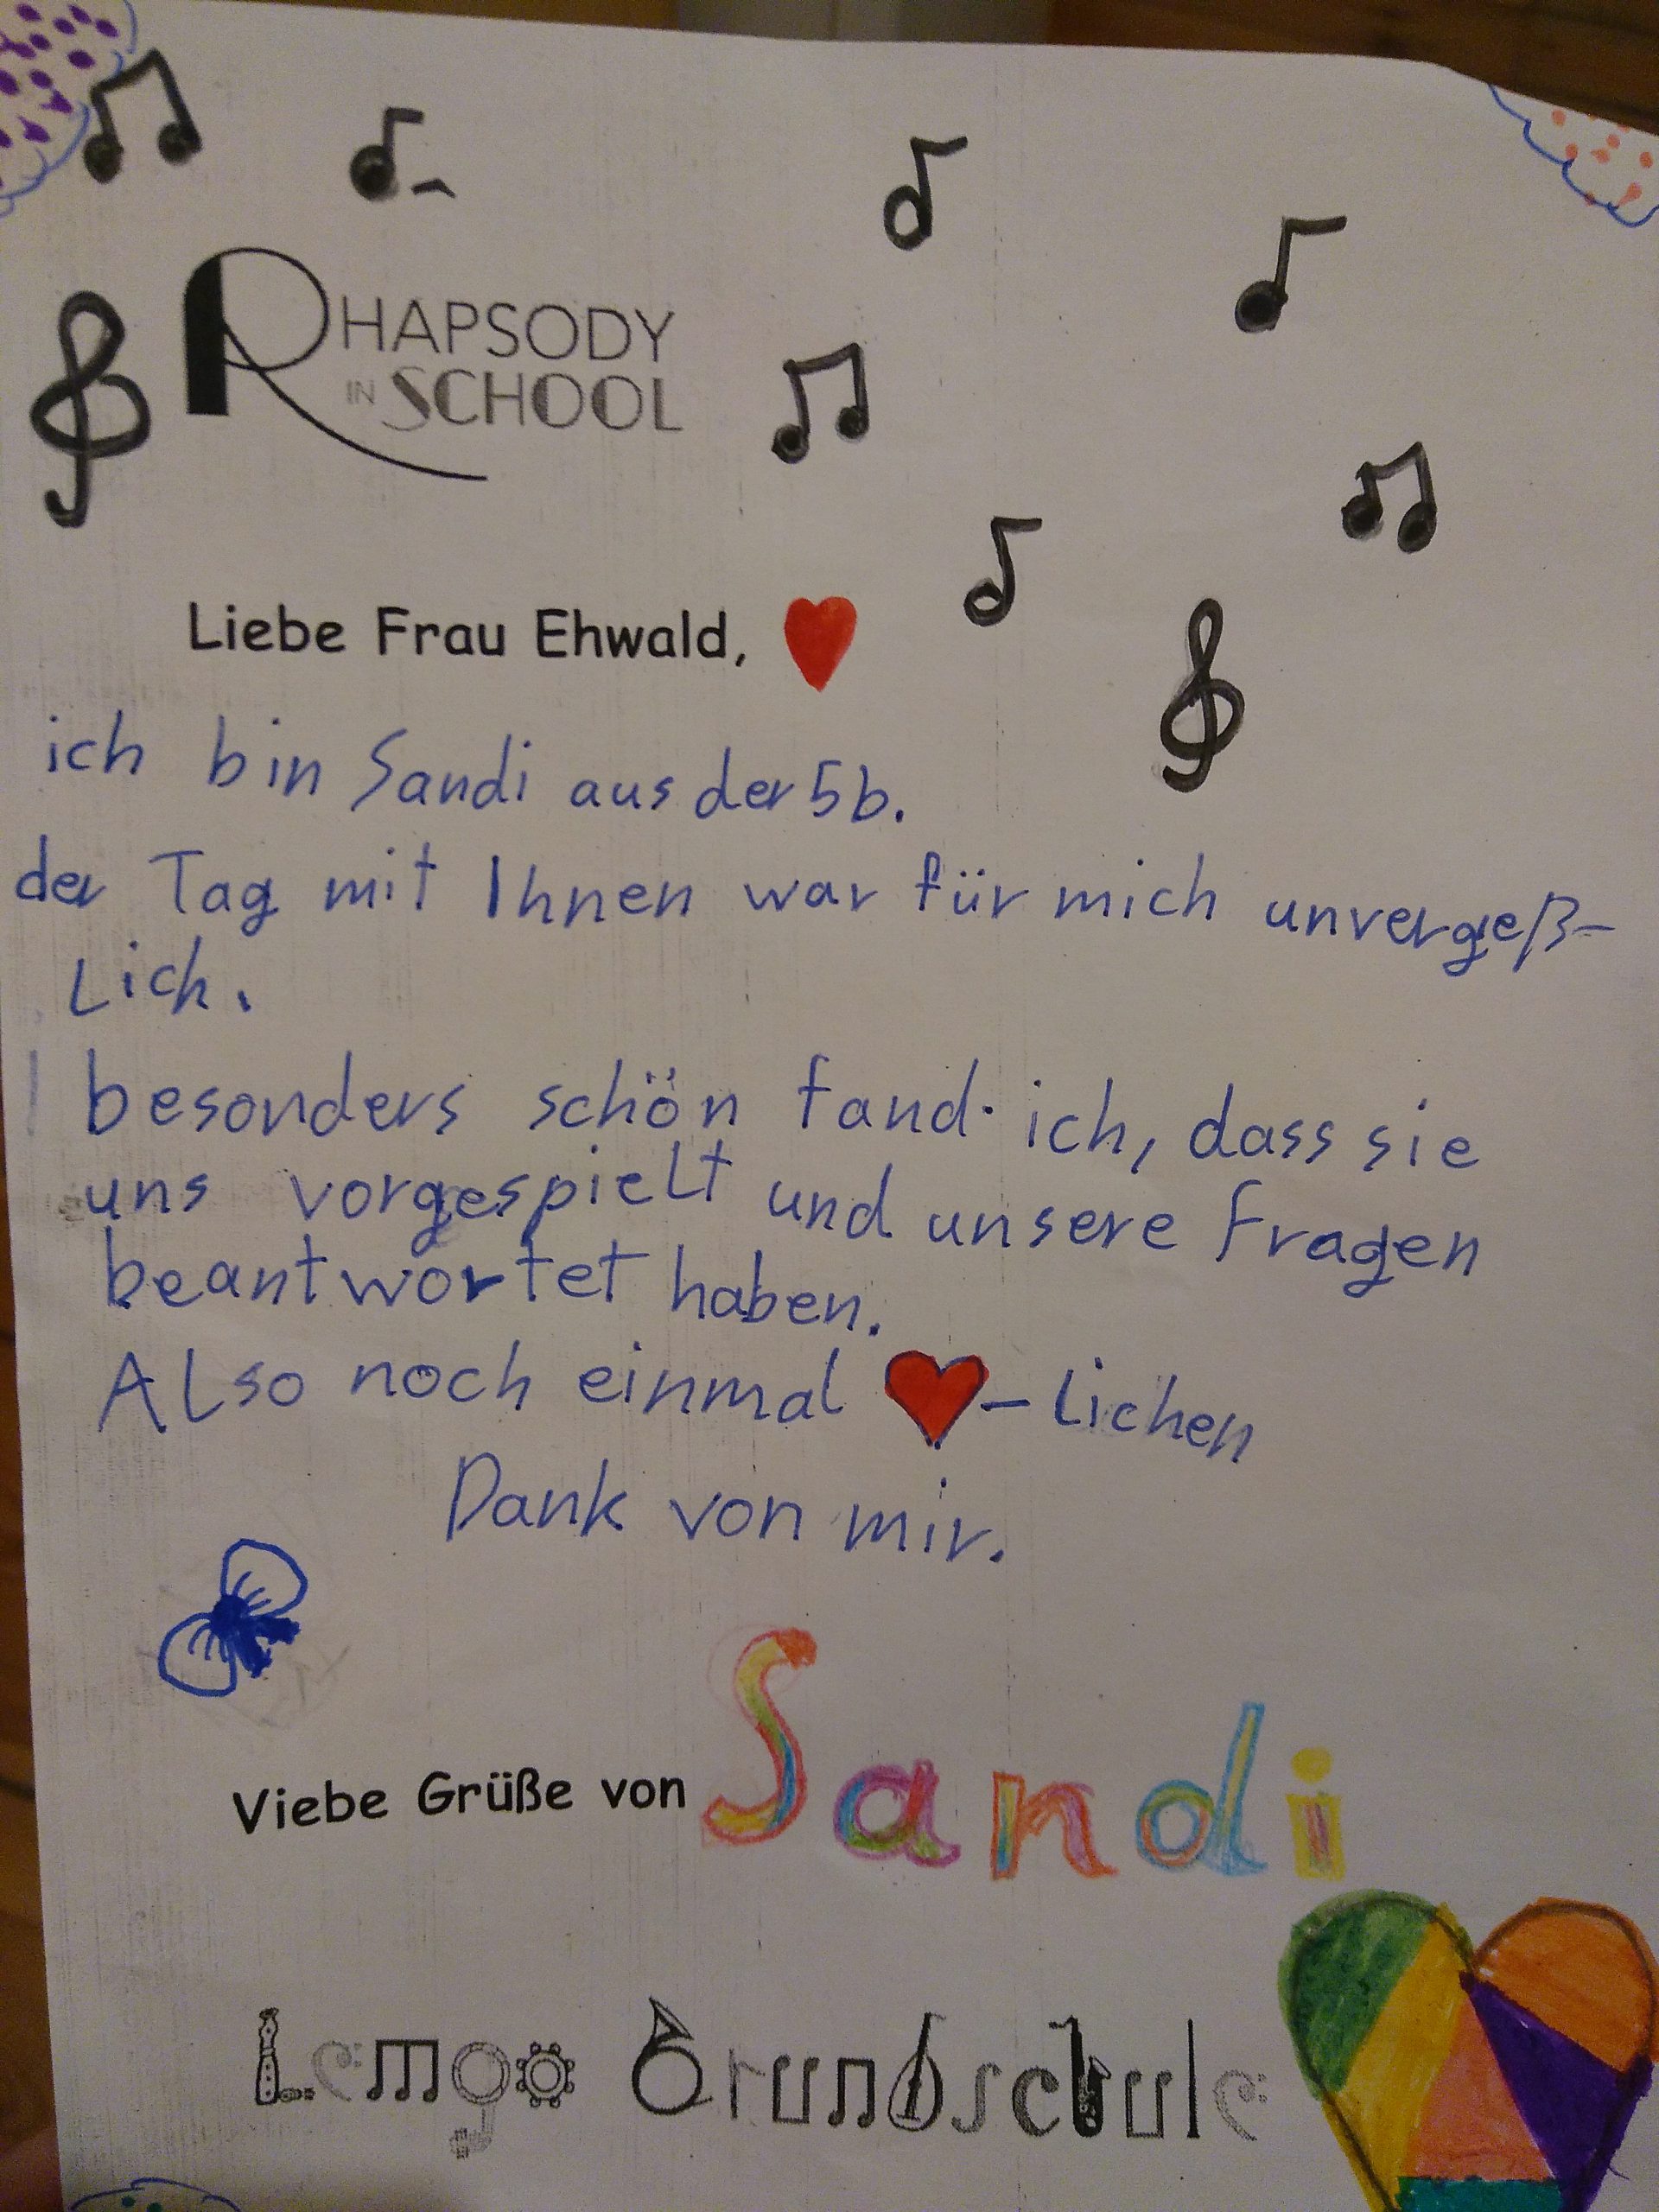 RHAPSODY
IN SCHOOL
Liebe Frau Ehwald,
ich bin Sandi aus der 5b.
der Tag mit Ihnen war für mich unvergeß-
Lich.
besonders schön fand ich, dass sie
uns vorgespielt und unsere fragen
beantwortet haben.
Also noch einmal ♥-lichen
Dank von mir.
Viebe Grüße von Sandi
Lemgo Grundschule